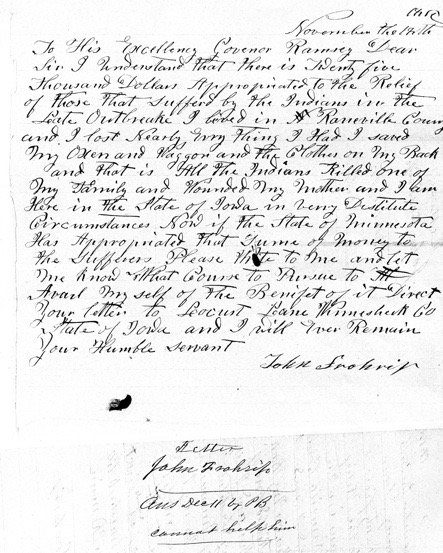 November the 14th
To His Excellency Covenor Ramsey Dear
Sir I Understand that there is Twenty five
Thousand Dollars Appropriated to the Relief
of those that Sufferd by the Indians in the
Late Outbreake I lived in Raneville County
and I lost Nearly Evry thing I Had I saved
My Oxen and Waggon and the Clothes on My Back
and that is All the Indians Killed one of
My Family and Wounded My Mother and I am
Here in the State of Iowa in very Destitute
Circumstances Now if the State of Minnesota
Has Appropriated that Sume of Money to
the Sufferers Please Write to Me and let
Me know What Course to Pursue to
Avail My self of the Benifet of it Direct
Your letter to Locust Lane Winnesheck Co
State of Iowa and I will Ever Remain
Your Humble Servant
John Frohrip
Letter
John Frohrip
Ans Dec 11 by PB
cannot help him